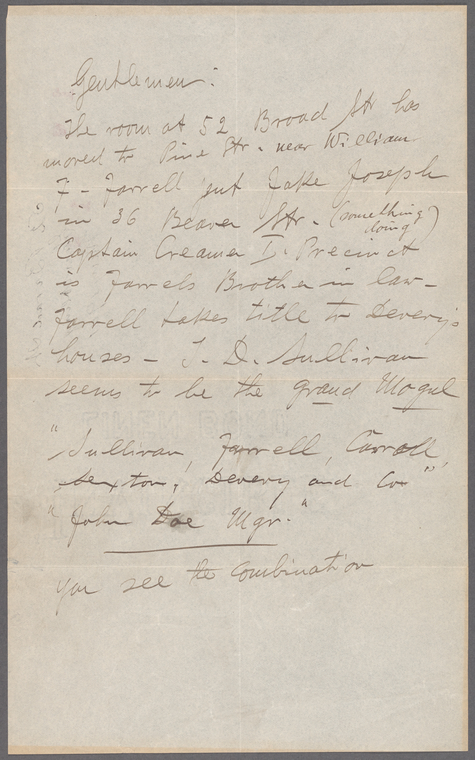 Gentlemen:
The room at 52 Broad Str has
moved to Pine Str. near William
F- Farrell put Jake Joseph
in 36 Beaver Str. (something
doing)
Captain Creamer I. Precinct
is Farrels Brother in law-
Farrell takes title to Devery's
houses - T. D. Sullivan
seems to be the grand Mogul
"Sullivan, Farrell, Carroll,
Sexton, Devery and Co"
"John Doe Mgr."
You see the combination